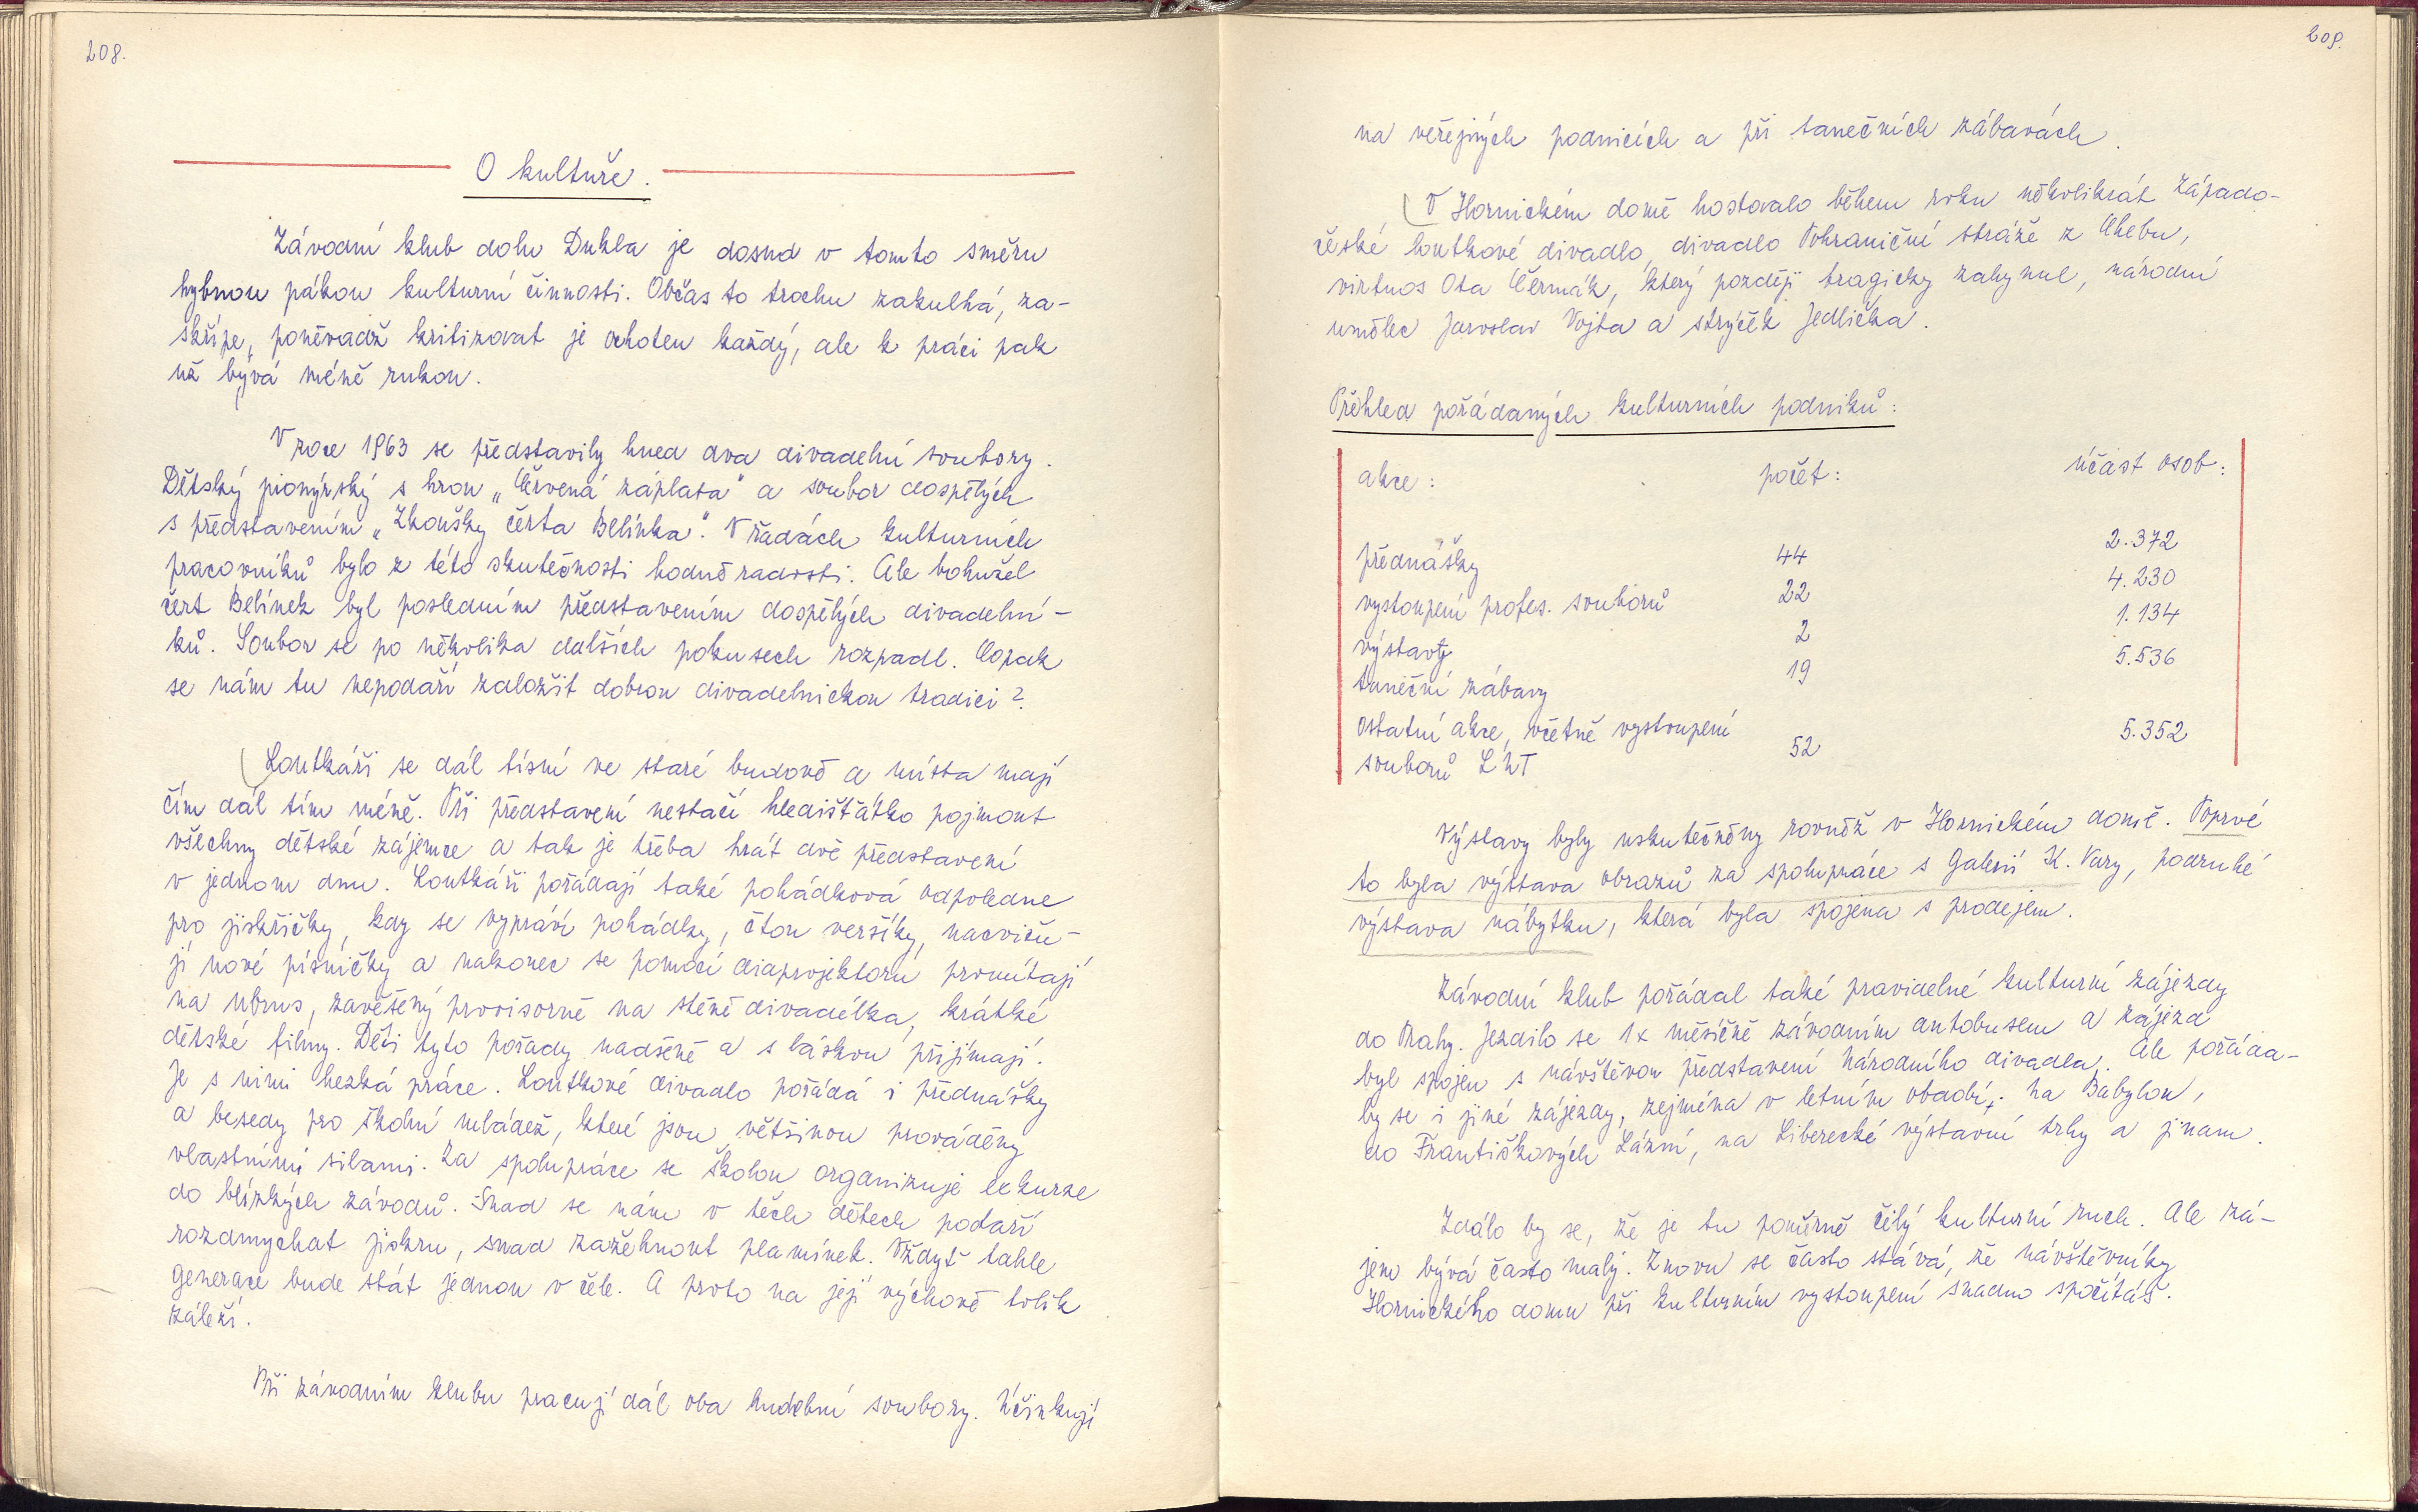 208.
O kultuře.
Závodní klub dolu Dukla je dosud v tomto směru
hybnou pákou kulturní činnosti. Občas to trochu zakulhá, za-
skřípe, poněvadž kritizovat je ochoten každý, ale k práci pak
už bývá méně rukou.
V roce 1963 se představily hned dva divadelní soubory.
Dětský pionýrský s hrou „Červená záplata" a soubor dospělých
s představením „Zkoušky čerta Belínka". V řadách kulturních
pracovníků bylo z této skutečnosti hodně radosti. Ale bohužel
čert Belínek byl posledním představením dospělých divadelní-
ků. Soubor se po několika dalších pokusech rozpadl. Copak
se nám tu nepodaří založit dobrou divadelnickou tradici?
Loutkáři se dál tísní ve staré budově a místa mají
čím dál tím méně. Při představení nestačí hledišťátko pojmout
všechny dětské zájemce a tak je třeba hrát dvě představení
v jednom dnu. Loutkáři pořádají také pohádková odpoledne
pro jiskřičky, kdy se vypráví pohádky, čtou veršíky, nacviču-
jí nové písničky a nakonec se pomocí diaprojektoru promítají
na ubrus, zavěšený provisorně na stěně divadélka, krátké
dětské filmy. Děti tyto pořady nadšeně a s láskou přijímají.
Je s nimi hezká práce. Loutkové divadlo pořádá i přednášky
a besedy pro školní mládež, které jsou většinou prováděny
vlastními silami. Za spolupráce se školou organizuje exkurze
do blízkých závodů. Snad se nám v těch dětech podaří
rozdmychat jiskru, snad zažehnout plamínek. Vždyť tahle
generace bude stát jednou v čele. A proto na její výchově tolik
záleží.
Při závodním klubu pracují dál oba hudební soubory. Účinkují
209.
na veřejných podnicích a při tanečních zábavách.
V Hornickém domě hostovalo během roku několikrát Západo-
české loutkové divadlo, divadlo Pohraniční stráže z Chebu,
virtuos Ota Čermák, který později tragicky zahynul, národní
umělec Jaroslav Vojta a strýček Jedlička.
Přehled pořádaných kulturních podniků:
akce: počet: účast osob:
přednášky 44 2.372
vystoupení profes. souborů 22 4.230
výstavy 2 1.134
taneční zábavy 19 5.536
ostatní akce, včetně vystoupení
souborů LUT 52 5.352
Výstavy byly uskutečněny rovněž v Hornickém domě. Poprvé
to byla výstava obrazů za spolupráce s Galerií K. Vary, podruhé
výstava nábytku, která byla spojena s prodejem.
Závodní klub pořádal také pravidelné kulturní zájezdy
do Prahy. Jezdilo se 1x měsíčně závodním autobusem a zájezd
byl spojen s návštěvou představení Národního divadla. Ale pořáda-
ly se i jiné zájezdy, zejména v letním období: na Babylon,
do Františkových Lázní, na Liberecké výstavní trhy a jinam.
Zdálo by se, že je tu poměrně čilý kulturní ruch. Ale zá-
jem bývá často malý. Znovu se často stává, že návštěvníky
Hornického domu při kulturním vystoupení snadno spočítáš.